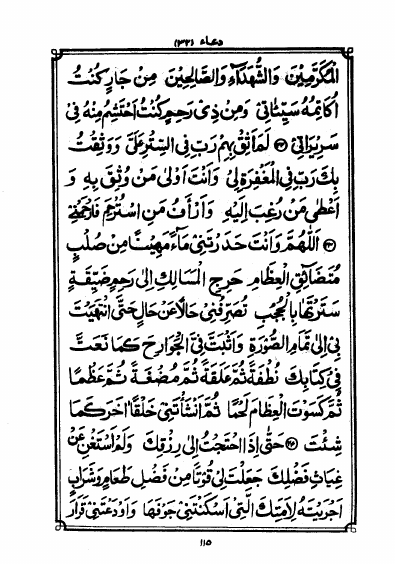 دعاء (٣٢)
الْمُكَرَّمِيْنَ وَالشُّهَدَآءِ وَالصَّالِحِيْنَ مِنْ جَارٍ كُنْتُ
اُكَاتِمُهُ سَيِّئَاتِيْ وَمِنْ ذِيْ رَحِمٍ كُنْتُ اَحْتَشِمُ مِنْهُ فِيْ
سَرِيْرَاتِيْ لَمْ اَثِقْ بِهِمْ رَبِّ فِي السِّتْرِ عَلَيَّ وَوَثِقْتُ
بِكَ رَبِّ فِي الْمَغْفِرَةِ لِيْ وَاَنْتَ اَوْلٰى مَنْ وُثِقَ بِهِ وَ
اَعْطٰى مَنْ رُغِبَ اِلَيْهِ وَاَرْاَفُ مَنِ اسْتُرْحِمَ فَارْحَمْنِيْ
اَللّٰهُمَّ وَاَنْتَ حَدَرْتَنِيْ مَآءً مَهِيْنًا مِنْ صُلْبٍ
مُتَضَآئِقِ الْعِظَامِ حَرِجِ الْمَسَالِكِ اِلٰى رَحِمٍ ضَيِّقَةٍ
سَتَرْتَهَا بِالْحُجُبِ تُصَرِّفُنِيْ حَالًا عَنْ حَالٍ حَتَّى انْتَهَيْتَ
بِيْ اِلٰى تَمَامِ الصُّوْرَةِ وَاَثْبَتَّ فِيَّ الْجَوَارِحَ كَمَا نَعَتَّ
فِيْ كِتَابِكَ نُطْفَةً ثُمَّ عَلَقَةً ثُمَّ مُضْغَةً ثُمَّ عَظْمًا
ثُمَّ كَسَوْتَ الْعِظَامَ لَحْمًا ثُمَّ اَنْشَأْتَنِيْ خَلْقًا اٰخَرَ كَمَا
شِئْتَ حَتّٰى اِذَا احْتَجْتُ اِلٰى رِزْقِكَ وَلَمْ اَسْتَغْنِ عَنْ
غِيَاثِ فَضْلِكَ جَعَلْتَ لِيْ قُوْتًا مِنْ فَضْلِ طَعَامٍ وَشَرَابٍ
اَجْرَيْتَهُ لِاَمَتِكَ الَّتِيْ اَسْكَنْتَنِيْ جَوْفَهَا وَاَوْدَعْتَنِيْ قَرَارَ
١١٥